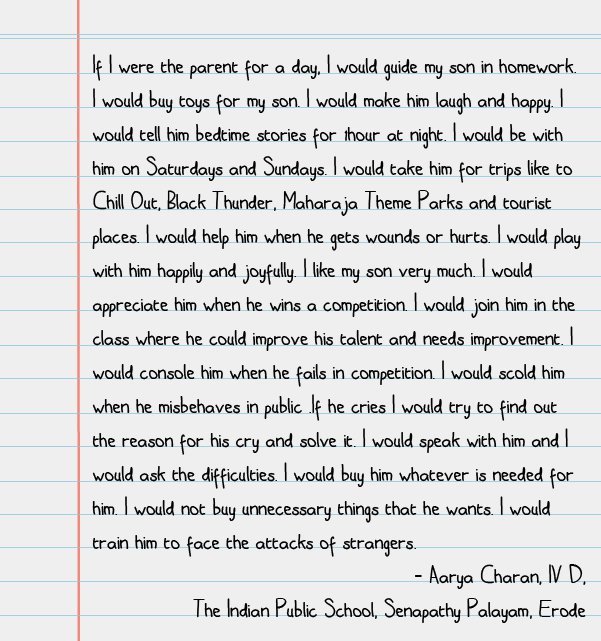 If I were the parent for a day, I would guide my son in homework.
I would buy toys for my son. I would make him laugh and happy. I
would tell him bedtime stories for 1hour at night. I would be with
him on Saturdays and Sundays. I would take him for trips like to
Chill Out, Black Thunder, Maharaja Theme Parks and tourist
places. I would help him when he gets wounds or hurts. I would play
with him happily and joyfully. I like my son very much. I would
appreciate him when he wins a competition. I would join him in the
class where he could improve his talent and needs improvement. I
would console him when he fails in competition. I would scold him
when he misbehaves in public .If he cries I would try to find out
the reason for his cry and solve it. I would speak with him and I
would ask the difficulties. I would buy him whatever is needed for
him. I would not buy unnecessary things that he wants. I would
train him to face the attacks of strangers.
- Aarya Charan, IV D,
The Indian Public School, Senapathy Palayam, Erode